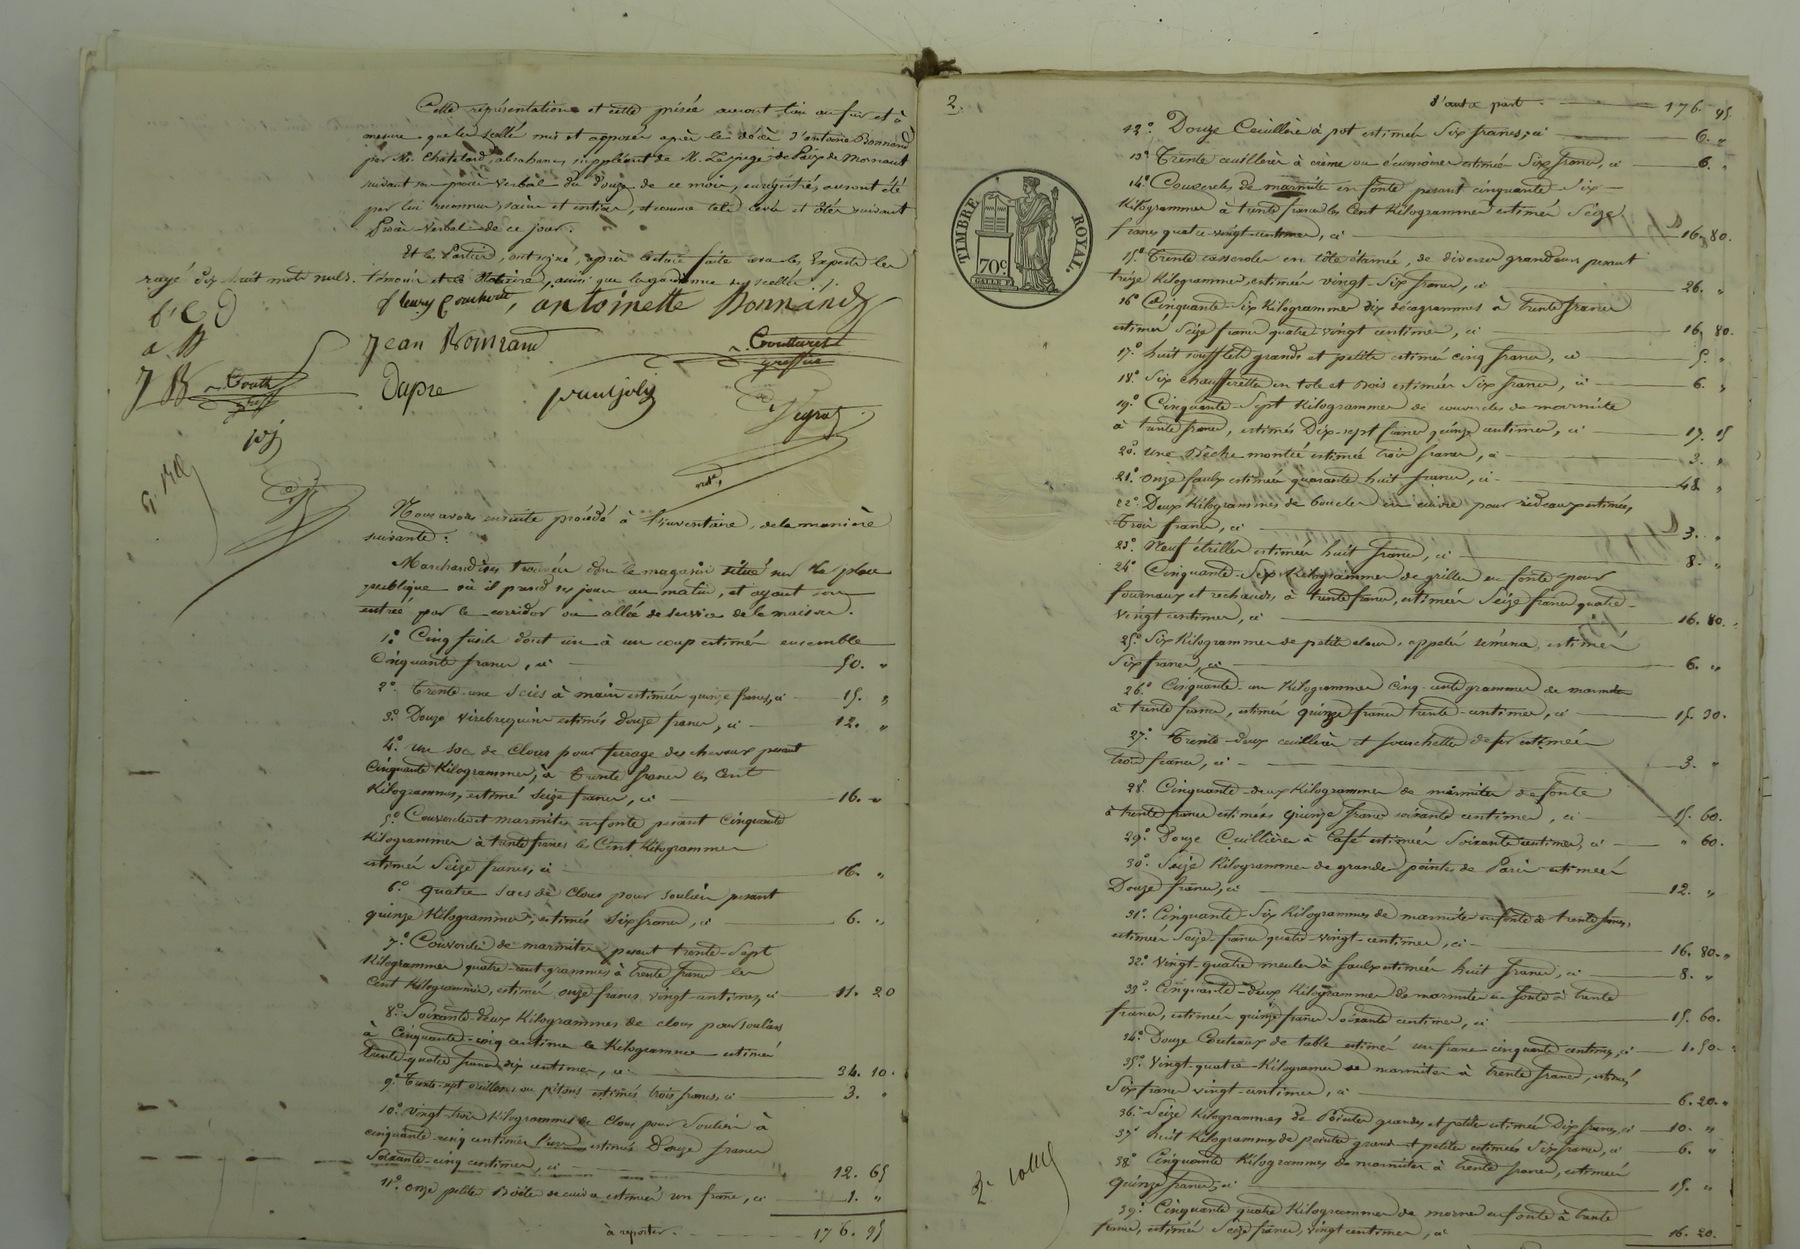 Cette représentation et cette prisée auront lieu au fur et à
mesure que les scellés mis et apposés après le décès d'antoine Bonnand
par M. Châtelard, abraham, suppléant de M. Le juge de Paix de Mornant
suivant son procès verbal du douze de ce mois, enregistré, auront été
par lui reconnus sains et entiers, et comme tels levés et ôtés suivant
Procès-verbal de ce jour.
Et les Parties, ont signé, après lecture faite avec les Experts les
témoins et le Notaire, ainsi que la gardienne des scellés.
rayé dix huit mots nuls.
fleury antoinette Bonnand
Jean Bonnand
Dupré
pauljoly
Nous avons ensuite procédé à l'inventaire, de la manière
suivante :
Marchandises trouvées dans le magasin situé sur la place
publique où il prend ses jours au matin, et ayant son
entrée par le corridor ou allée de service de la maison.
1.° Cinq fusils dont un à un coup estimés ensemble
Cinquante francs, ci 50. "
2.° Trente-une scies à main estimées quinze francs, ci 15. "
3.° Douze virebrequins estimés douze francs, ci 12. "
4.° un sac de clous pour ferrage des chevaux pesant
Cinquante Kilogrammes, à Trente francs les Cent
Kilogrammes, estimé seize francs, ci 16. "
5.° Couvercles et marmites en fonte pesant Cinquante
Kilogrammes à trente francs les Cent Kilogrammes
estimés Seize francs, ci 16. "
6.° quatre sacs de Clous pour soulier pesant
quinze Kilogrammes, estimés six francs, ci 6. "
7.° Couvercles de marmites pesant trente-sept
Kilogrammes quatre-cent grammes à trente francs les
Cent Kilogrammes, estimés onze francs vingt centimes, ci 11. 20
8.° Soixante-deux Kilogrammes de clous pour souliers
à Cinquante-cinq centimes le Kilogramme estimés
trente-quatre francs dix centimes, ci 34. 10.
9.° Trente-sept oreillons ou pitons estimés trois francs, ci 3. "
10.° Vingt-trois Kilogrammes de Clous pour Souliers à
cinquante-cinq centimes l'un estimés Douze francs
Soixante-cinq centimes, ci 12. 65
11.° onze petites Boîtes de cuivre estimées un franc, ci 1. "
à reporter. 176. 95
2.
D'autre part 176. 95.
TIMBRE ROYAL.
70c
12.° Douze Cueillères à pot estimées Six francs, ci 6. "
13.° Trente cueillères à crème ou écumoires estimées Six francs, ci 6. "
14.° Couvercles de marmite en fonte pesant cinquante Six
Kilogrammes à trente francs les Cent Kilogrammes estimés Seize
francs quatre-vingt-centimes, ci 16. 80.
15.° Trente casseroles en tôle étamée, de diverses grandeurs pesant
treize Kilogrammes, estimées vingt-six francs, ci 26. "
16.° Cinquante-Six Kilogrammes dix décagrammes à trente francs
estimés Seize francs quatre-vingt centimes, ci 16. 80.
17.° huit soufflets grands et petits estimés cinq francs, ci 5. "
18.° Six chaufferettes en tole et bois estimées Six francs, ci 6. "
19.° Cinquante-Sept Kilogrammes de couvercles de marmite
à trente francs, estimés Dix-sept francs quinze centimes, ci 17. 15
20.° une Bêche montée estimée trois francs, ci 3. "
21.° onze faulx estimées quarante huit francs, ci 48. "
22.° Deux Kilogrammes de boucles en cuivre pour rideaux estimés,
trois francs, ci 3. "
23.° Neuf étrilles estimées huit francs, ci 8. "
24.° Cinquante-Six Kilogrammes de grilles en fonte pour
fourneaux et rechauds, à trente francs, estimées Seize francs quatre-
vingt centimes, ci 16. 80.
25.° Six Kilogrammes de petits clous, appelés estimés
Six francs, ci 6. "
26.° Cinquante-un Kilogrammes cinq-cents grammes de marmite
à trente francs, estimés quinze francs trente-centimes, ci 15. 30.
27.° Trente-deux cueillères et fourchettes de fer estimées
trois francs, ci 3. "
28.° Cinquante-deux Kilogrammes de marmites de fonte
à trente francs estimés quinze francs soixante centimes, ci 15. 60.
29.° Douze Cueillères à Café estimées Soixante centimes, ci " 60.
30.° Seize Kilogrammes de grandes pointes de Paris estimées
Douze francs, ci 12. "
31.° Cinquante-Six Kilogrammes de marmites en fonte à trente francs,
estimées Seize francs quatre-vingt-centimes, ci 16. 80. "
32.° Vingt-quatre meules à faulx estimées huit francs, ci 8. "
33.° Cinquante-deux Kilogrammes de marmites en fonte à trente
francs, estimées quinze francs Soixante centimes, ci 15. 60.
34.° Douze Couteaux de table estimés un franc cinquante centimes, ci 1. 50.
35.° Vingt-quatre-Kilogrammes de marmites à trente francs, estimés
Six francs vingt-centimes, ci 6. 20. "
36.° Seize Kilogrammes de Pointes grandes et petites estimées Dix francs, ci 10. "
37.° huit Kilogrammes de pointes grandes et petites estimées Six francs, ci 6. "
38.° Cinquante Kilogrammes de marmites à trente francs, estimées
quinze francs, ci 15. "
39.° Cinquante quatre Kilogrammes de en fonte à trente
francs, estimés Seize francs, vingt centimes, ci 16. 20.